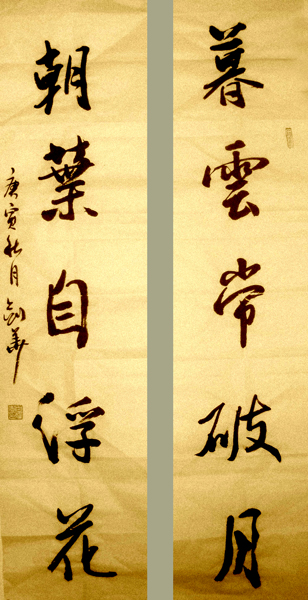 暮雲常破月
朝葉自浮花
庚寅秋月劍華